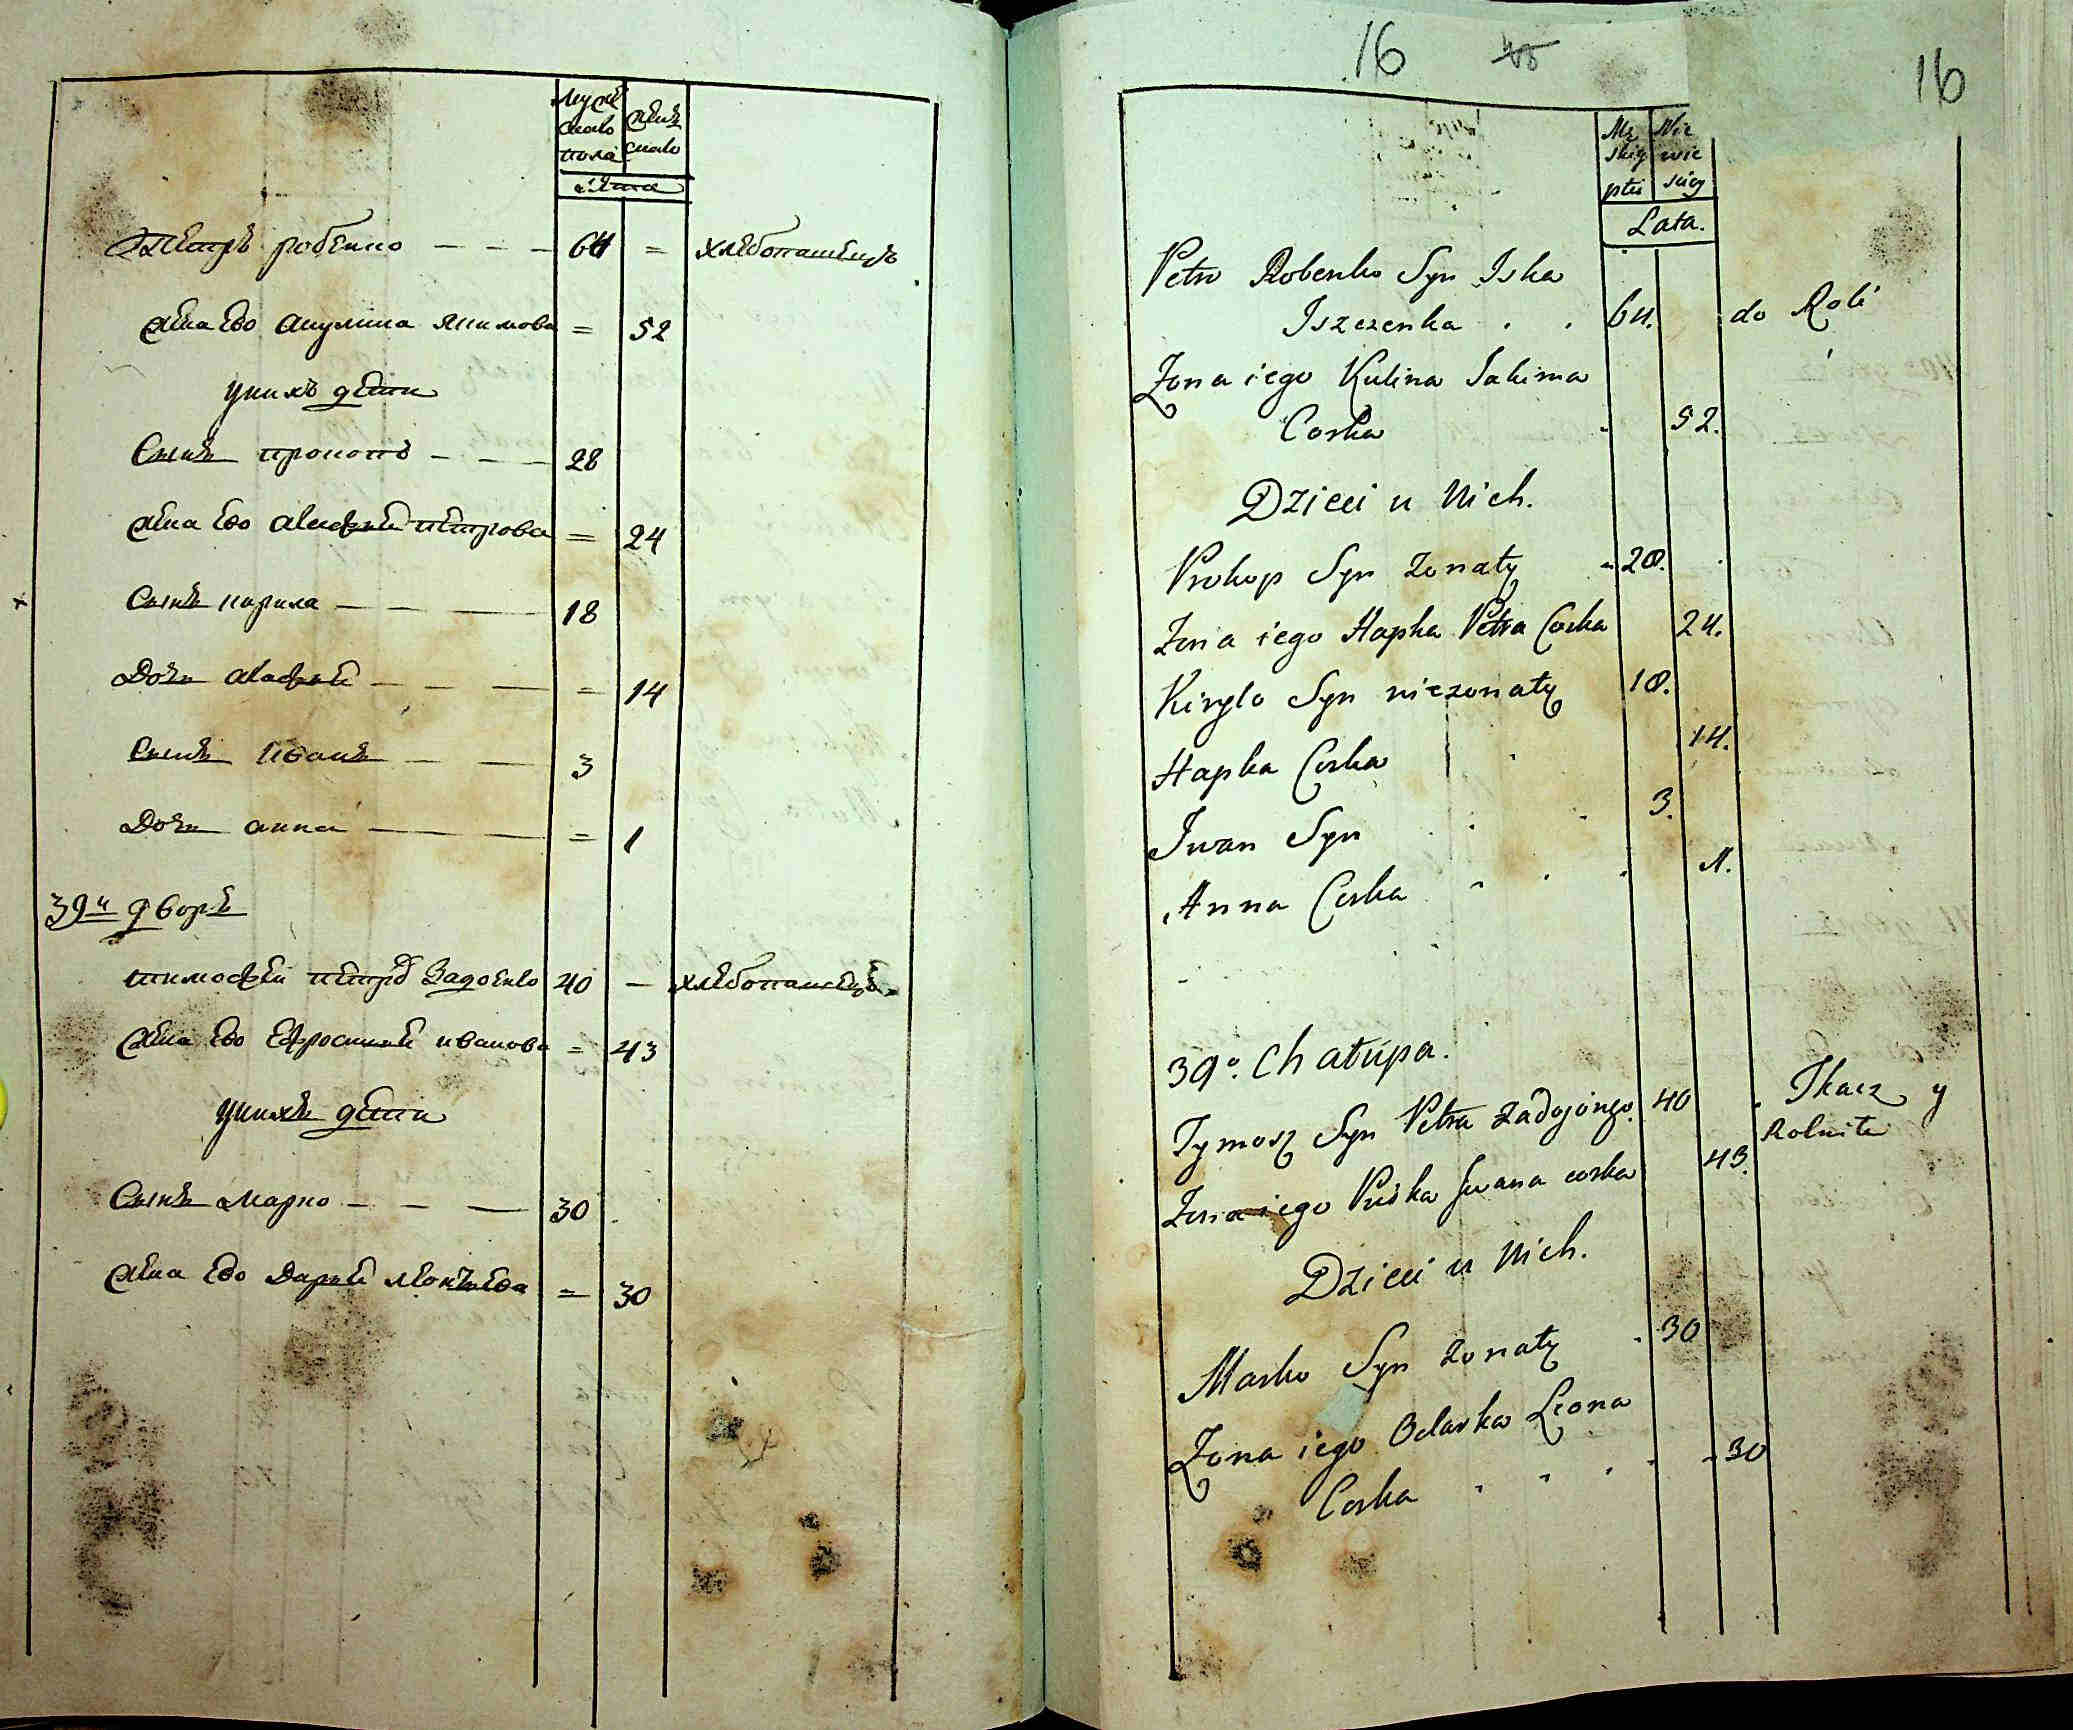 мужескаго пола
женскаго
лѣта
Петръ робенко — — — 64 = хлебопашецъ
жена Ево акулина Якимова = 52
у нихъ дети
Сынъ прокопъ — — — 28
жена Ево агафия петрова = 24
Сынъ кирила — — — 18
Дочь агафия — — — = 14
Сынъ Иванъ — — 3
Дочь анна — — = 1
39й дворъ
тимофей петровъ Задоенко 40 — хлебопашецъ
жена Ево Ефросиния иванова = 43
у нихъ дети
Сынъ марко — — — 30
жена Ево Дария леонтиева = 30
16 16
Mę Nie
skiey wie
płci sciey
Lata.
Petro Robenko Syn Iska
Iszczenka . . 64. do Roli
Zona iego Kulina Jakima
Corka 52.
Dzieci u Nich.
Prokop Syn zonaty 28.
Zona iego Hapka Petra Corka 24.
Kirylo Syn niezonaty 18.
Hapka Corka 14.
Iwan Syn 3.
Anna Corka 1.
39o. Chatupa.
Tymosz Syn Petra 40 Tkacz y
Rolnik
Zona iego Iwana corka 43.
Dzieci u Nich.
Marko Syn zonaty 30
Zona iego Odarka Leona
Corka 30